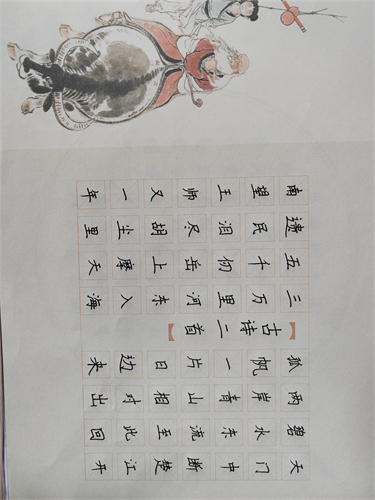 天门中断楚江开
碧水东流至此回
两岸青山相对出
孤帆一片日边来
【古诗二首】
三万里河东入海
五千仞岳上摩天
遗民泪尽胡尘里
南望王师又一年